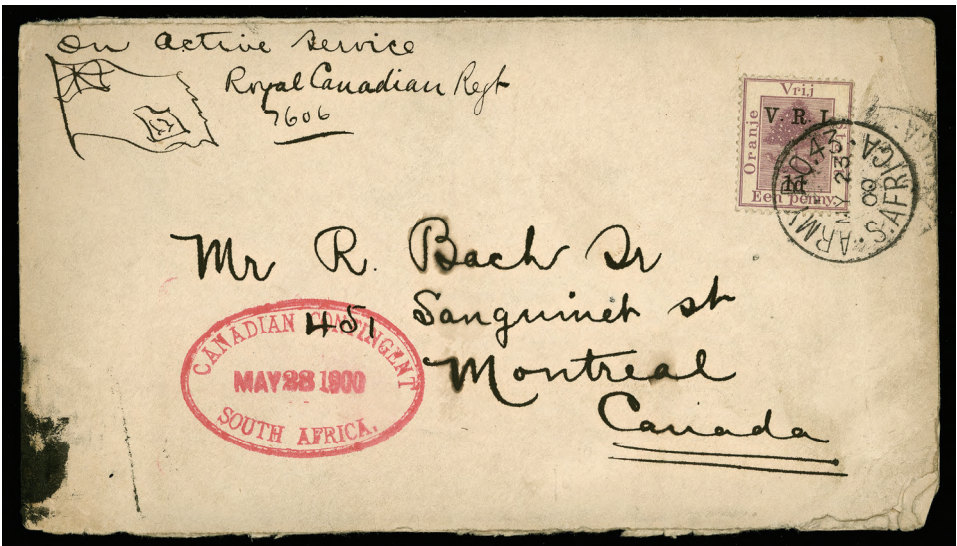 On Active Service
Royal Canadian Regt
7606
Vrij
Oranje
V. R. I.
1d
Een penny
ARMY P.O. 43
MY 23
00
S. AFRICA.
Mr R. Bach Sr
451 Sanguinet st
Montreal
Canada
CANADIAN CONTINGENT
MAY 28 1900
SOUTH AFRICA.